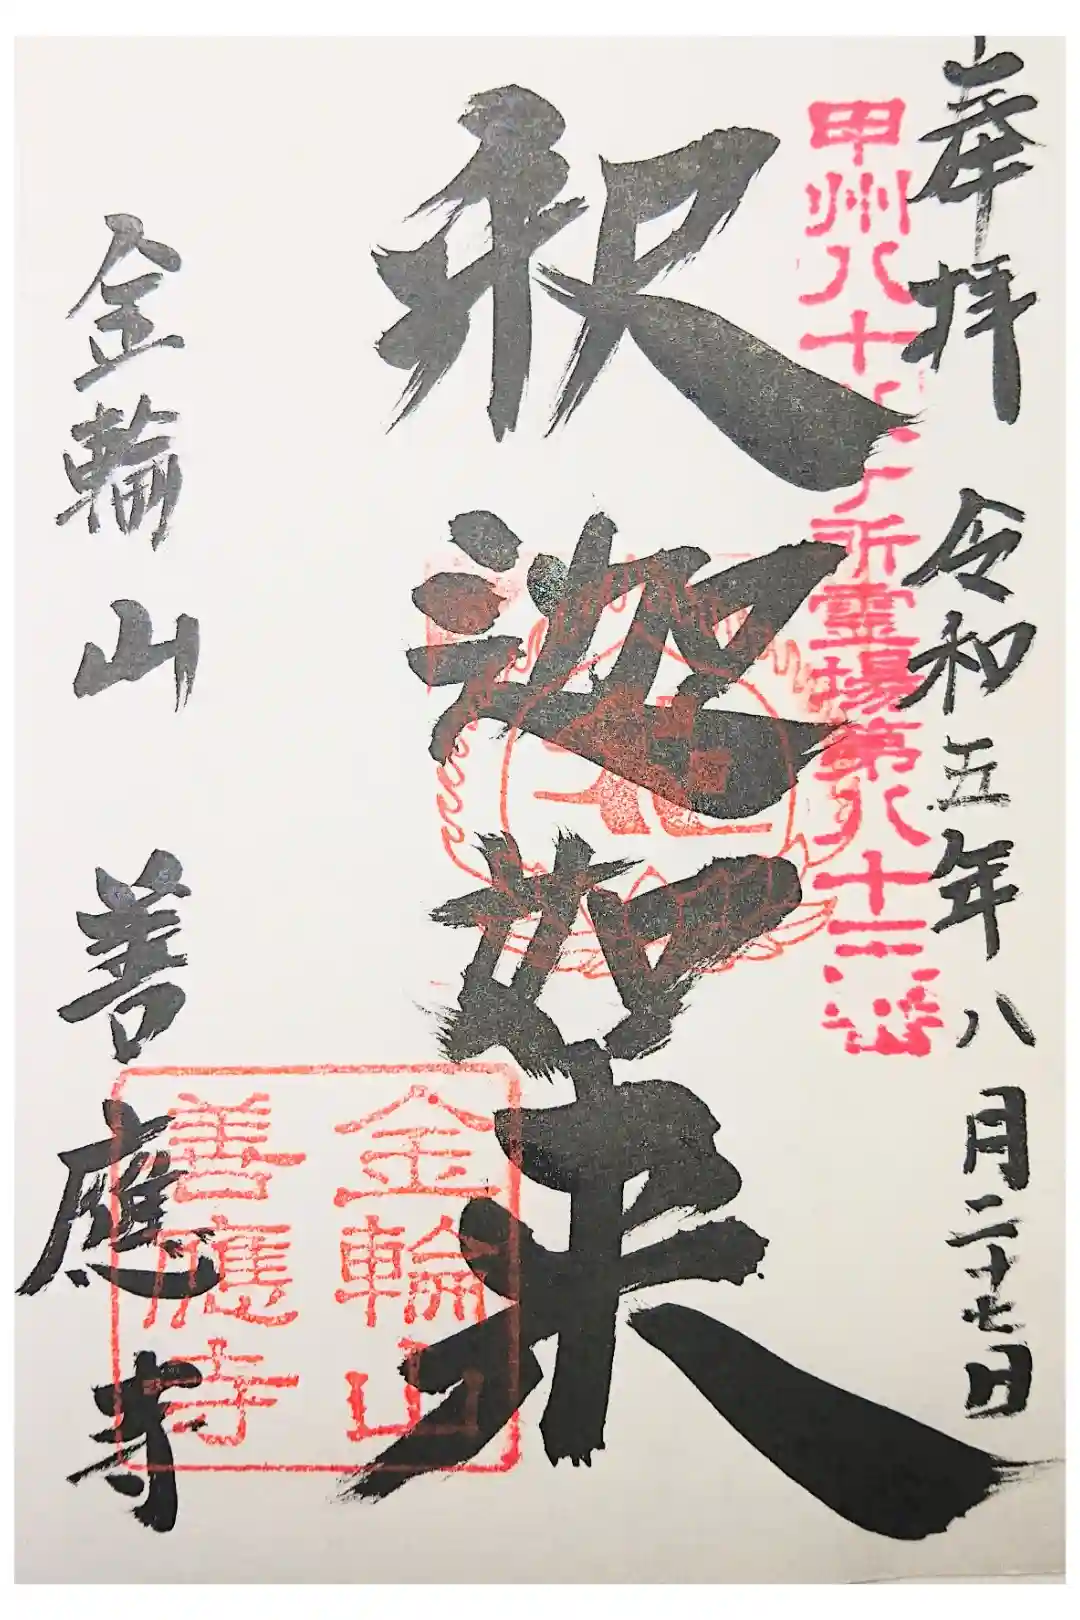 奉拝 令和五年八月二十七日
甲州八十八ヶ所霊場第八十二番
釈迦如来
金輪山 善應寺
金輪山
善應寺